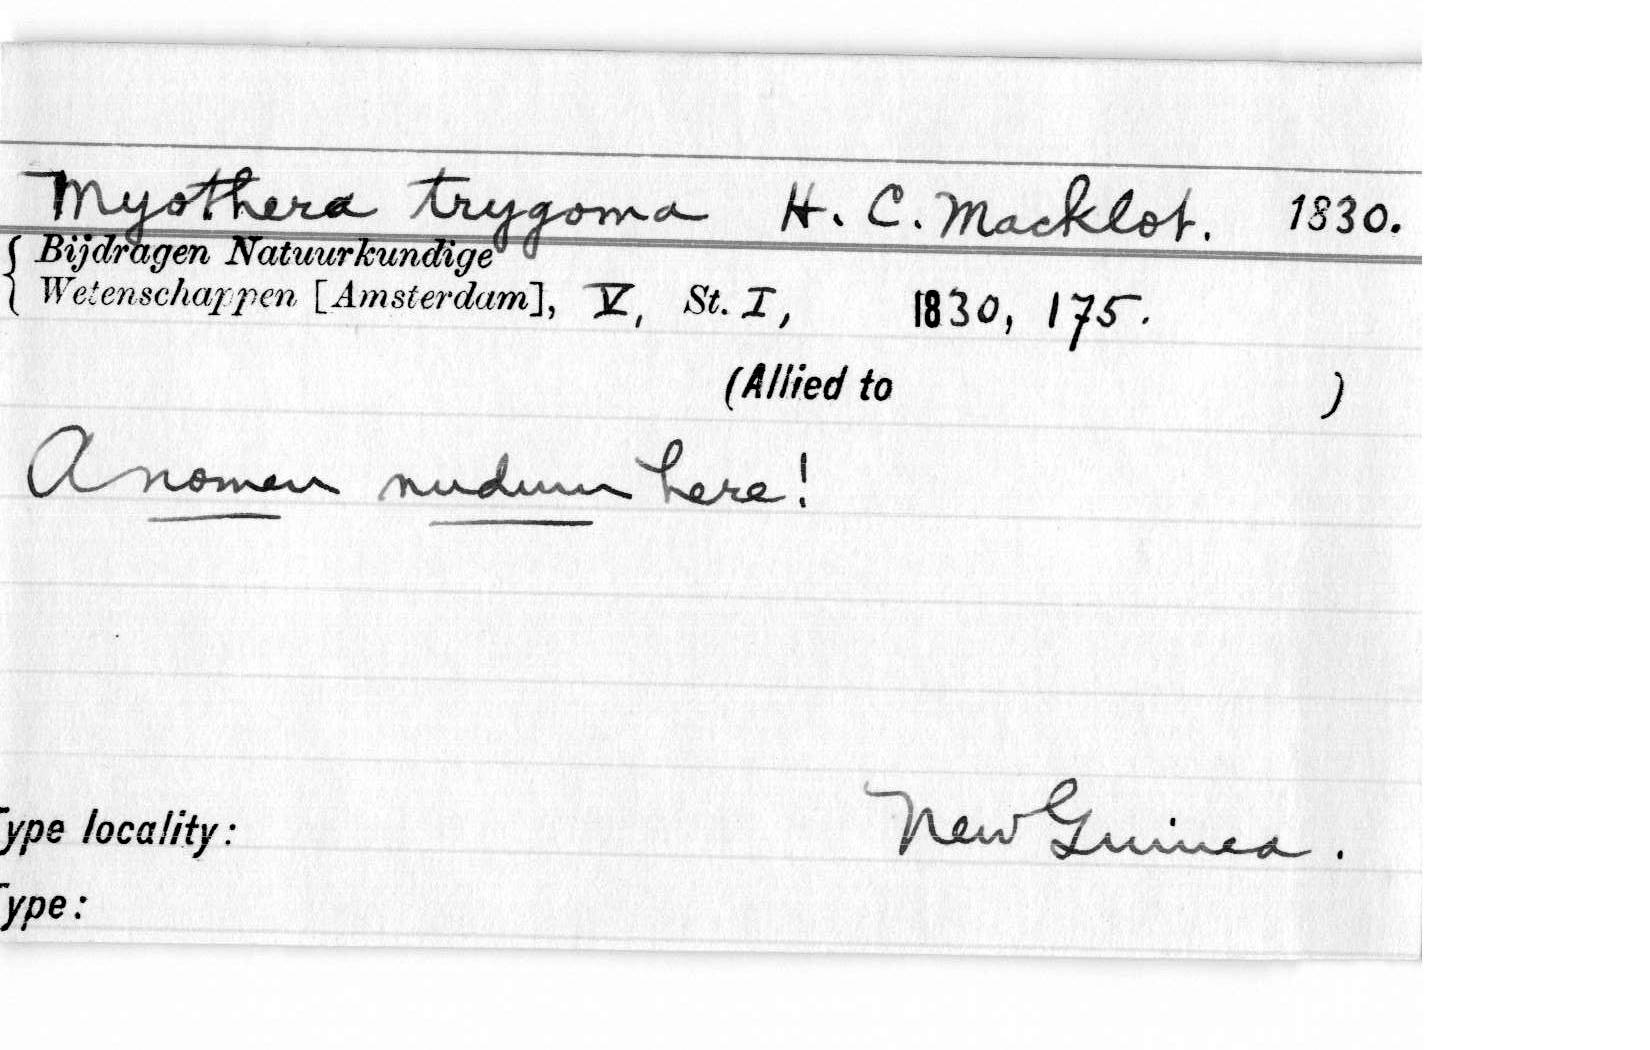 Myothera trygoma H. C. Macklot. 1830.
Bijdragen Natuurkundige
Wetenschappen [Amsterdam], V, St. I, 1830, 175.
(Allied to )
A nomen nudum here!
Type locality: New Guinea.
Type: